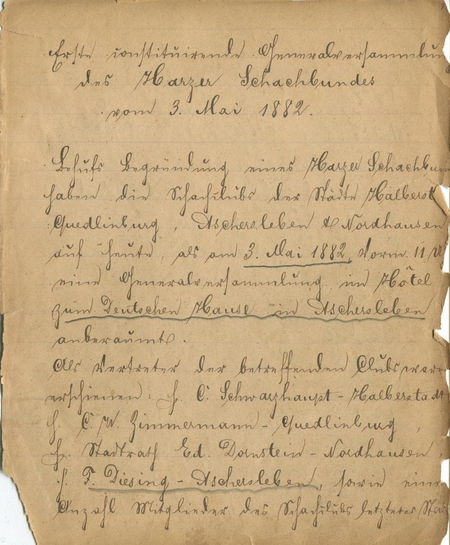 Erste constituirende Generalversammlun
des Harzer Schachbundes
vom 3. Mai 1882.
Behufs Begründung eines Harzer Schachbun
haben die Schachclubs der Städte Halberst
Quedlinburg, Aschersleben & Nordhausen
auf heute, als am 3. Mai 1882, Vorm. 11 U
eine Generalversammlung im Hôtel
zum Deutschen Hause in Aschersleben
anberaumt.
Als Vertreter der betreffenden Clubs ware
erschienen: H. C. Schwarzhaupt - Halberstadt
H. C. W. Zimmermann - Quedlinburg,
H. Stadtrath Ed. Dornstein - Nordhausen
H. F. Diesing - Aschersleben, sowie eine
Anzahl Mitglieder des Schachclubs letzterer Stadt